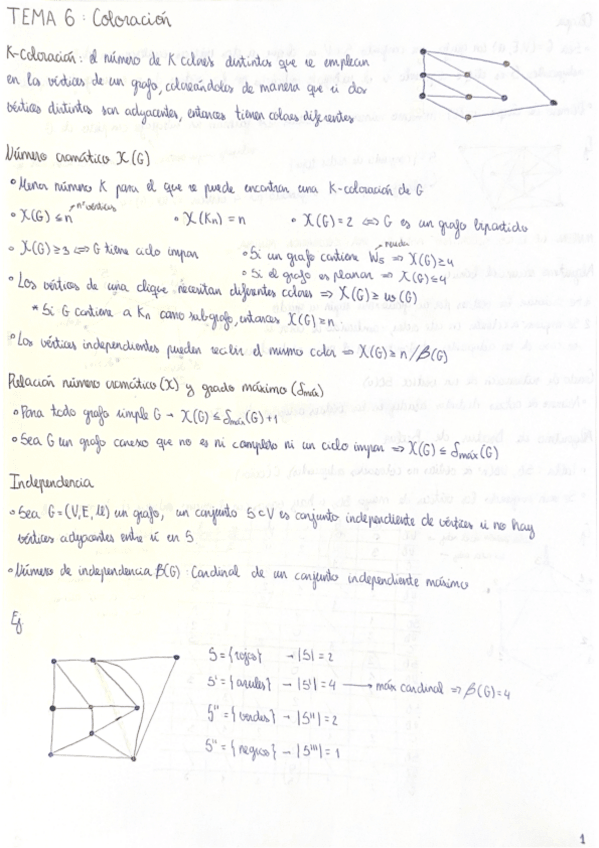 TEMA 6: Coloración
K-Coloración: el número de K colores distintos que se emplean
en los vértices de un grafo, coloreándolos de manera que si dos
vértices distintos son adyacentes, entonces tienen colores diferentes
Número cromático X(G)
• Menor número K para el que se puede encontrar una K-coloración de G
• X(G) ≤ n → nº vértices • X(Kn) = n • X(G) = 2 ⇔ G es un grafo bipartido
• X(G) ≥ 3 ⇔ G tiene ciclo impar • Si un grafo contiene W5 → rueda ⇒ X(G) ≥ 4
• Si el grafo es planar ⇒ X(G) ≤ 4
• Los vértices de una clique necesitan diferentes colores ⇒ X(G) ≥ ω(G)
* Si G contiene a Kn como subgrafo, entonces X(G) = n
• Los vértices independientes pueden recibir el mismo color ⇒ X(G) ≥ n/β(G)
Relación número cromático (X) y grado máximo (δmáx)
• Para todo grafo simple G → X(G) ≤ δmáx(G)+1
• Sea G un grafo conexo que no es ni completo ni un ciclo impar ⇒ X(G) ≤ δmáx(G)
Independencia
• Sea G = (V, E, ) un grafo, un conjunto S ⊂ V es conjunto independiente de vértices si no hay
vértices adyacentes entre sí en S
• Número de independencia β(G): Cardinal de un conjunto independiente máximo
Ej
S = {rojos} → |S| = 2
S' = {azules} → |S'| = 4 → máx cardinal ⇒ β(G) = 4
S'' = {verdes} → |S''| = 2
S''' = {negros} → |S'''| = 1
1